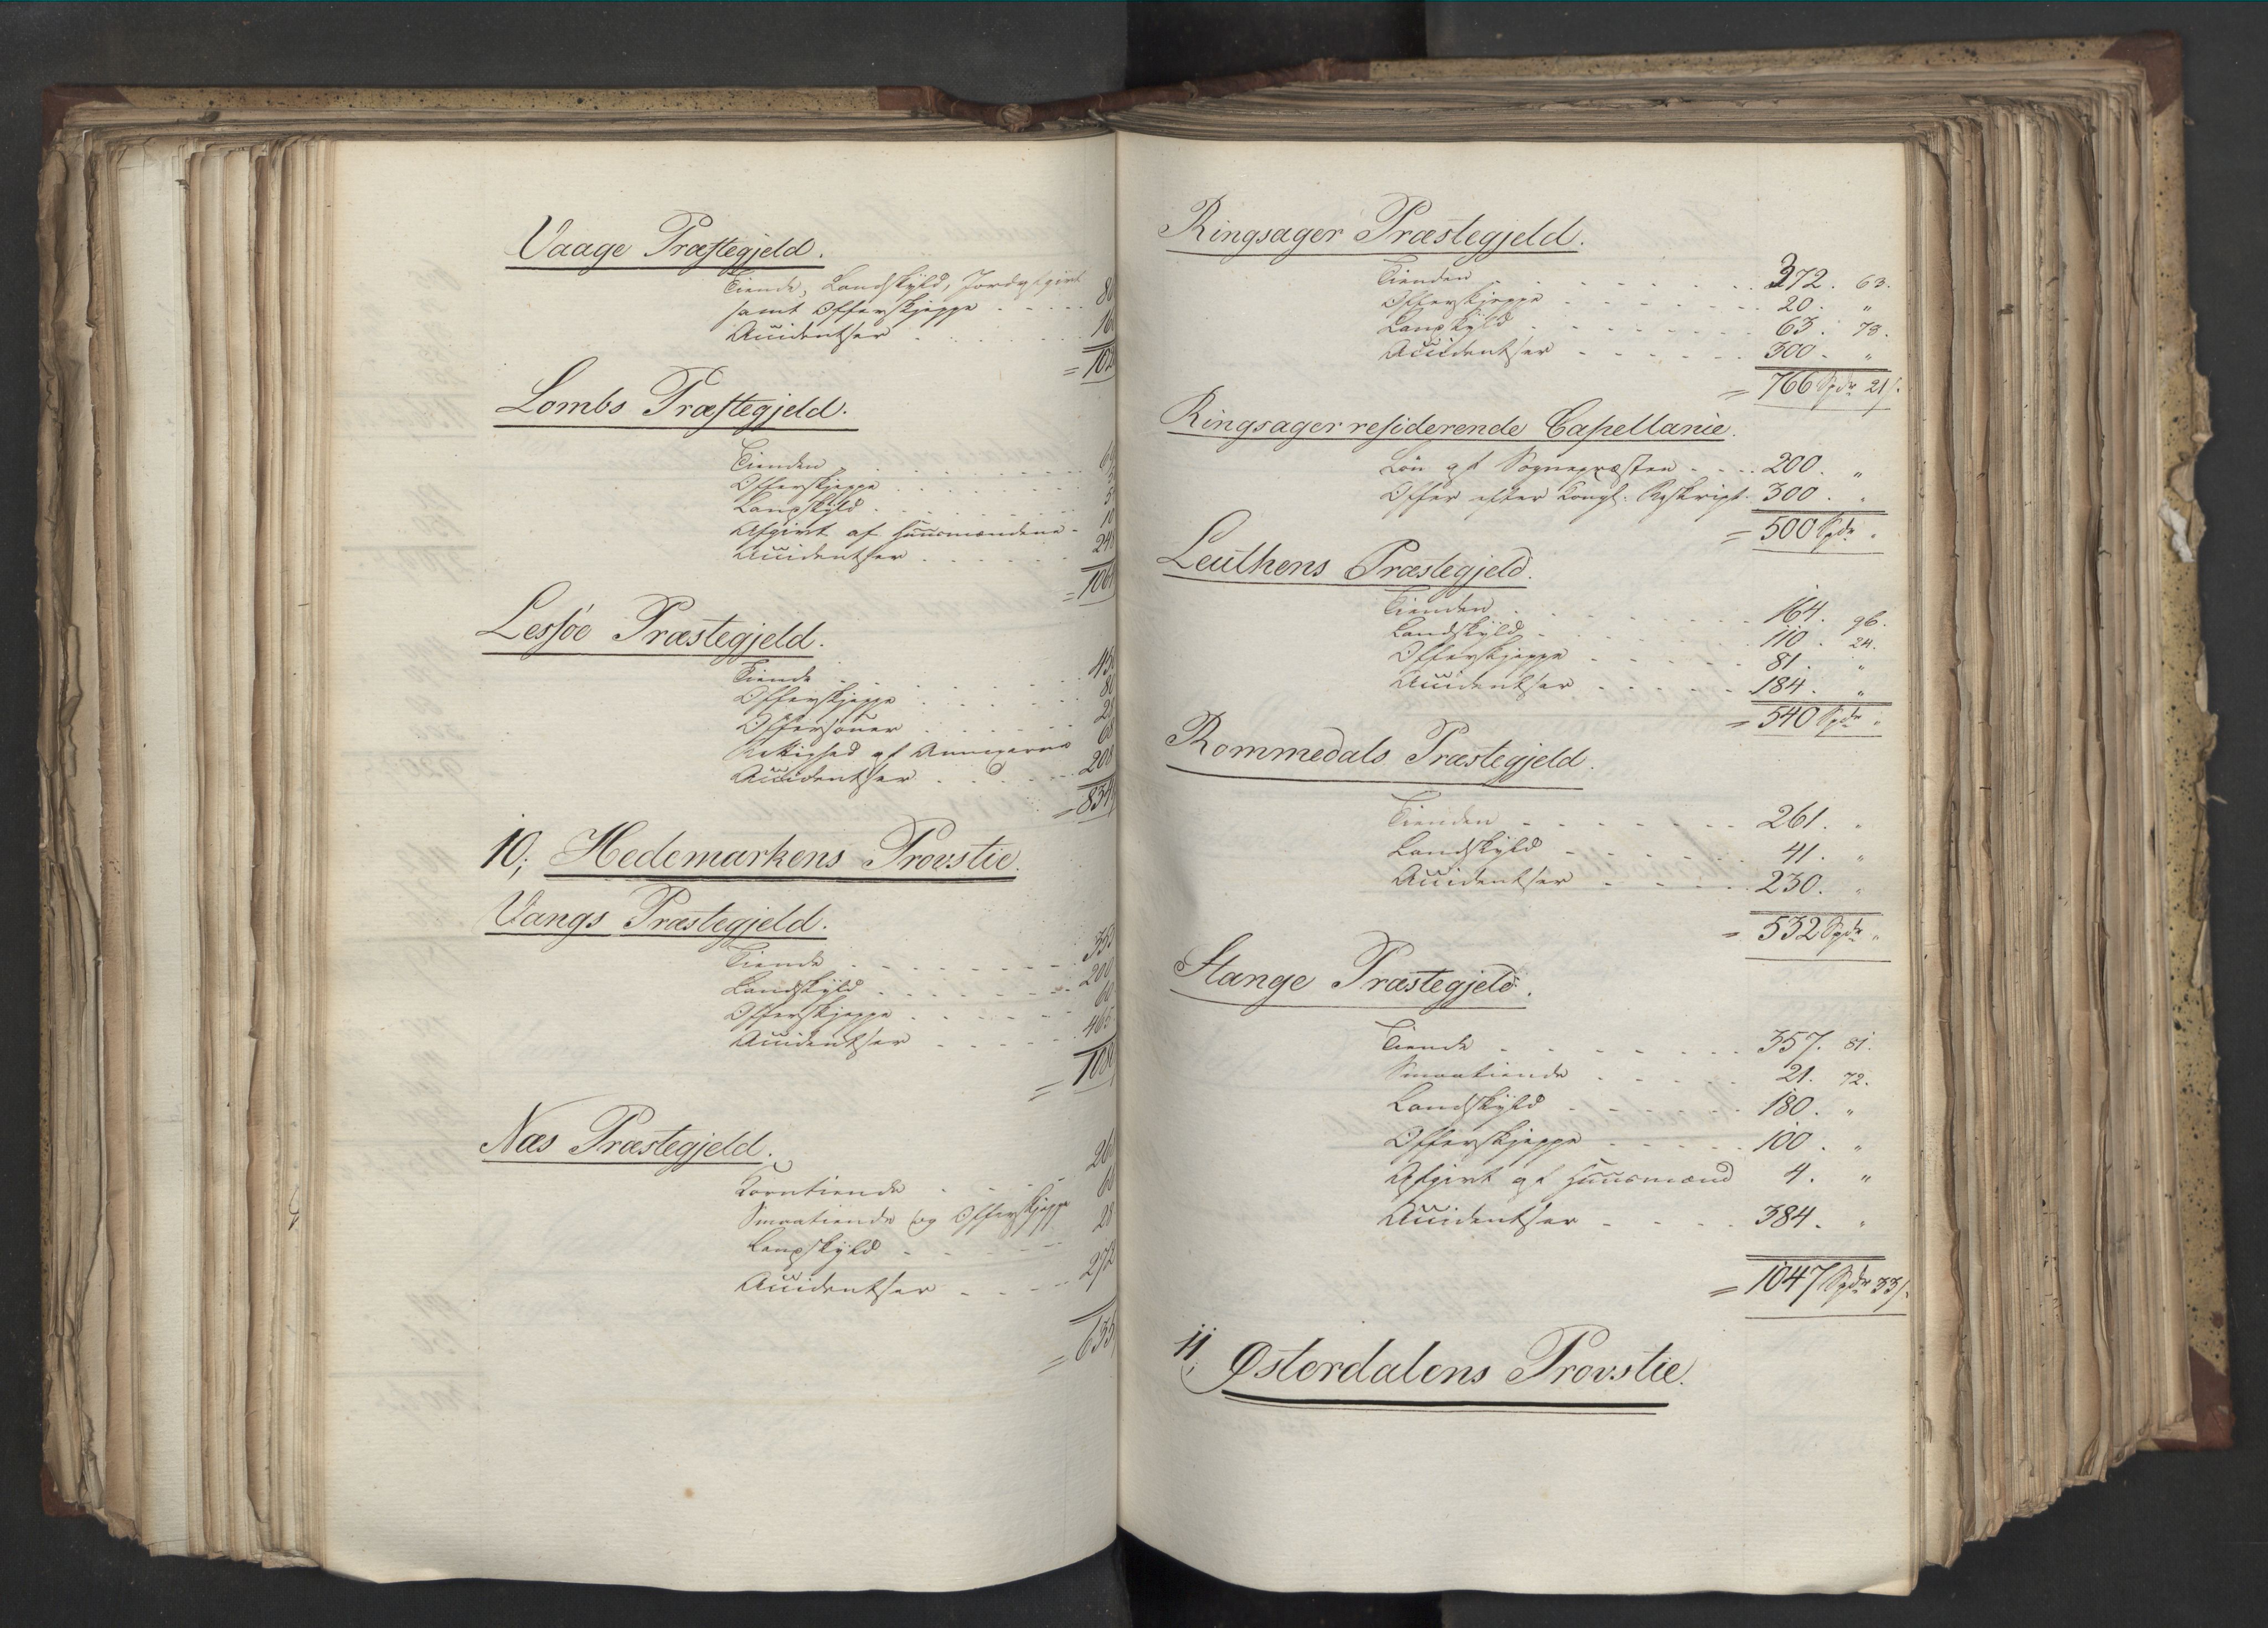 Vaage Præstegjeld.
Tiende, Landskyld, Jordafgivt
samt Offerskjeppe
Accidentser
Lombs Præstegjeld.
Tienden
Offerskjeppe
Landskyld
Afgivt af Huusmændene
Accidentser
Lessøe Præstegjeld.
Tiende
Offerskjeppe
Offersouer
Rettighed af Annexerne
Accidentser
10, Hedemarkens Provstie.
Vangs Præstegjeld.
Tiende
Landskyld
Offerskjeppe
Accidentser
Næs Præstegjeld.
Korntiende
Smaatiende og Offerskjeppe
Landskyld
Accidentser
Ringsager Præstegjeld.
Tienden 372. 63.
Offerskjeppe 20. "
Landskyld 63. 78.
Accidentser 300. "
= 766 Spdr 21 s.
Ringsager residerende Capellanie.
Løn af Sognepræsten 200. "
Offer efter Kongl. Reskript. 300. "
= 500 Spdr. "
Leuthens Præstegjeld.
Tienden 164. 96.
Landskyld 110. 24.
Offerskjeppe 81. "
Accidentser 184. "
= 540 Spdr "
Rommedals Præstegjeld.
Tienden 261. "
Landskyld 41. "
Accidentser 230. "
= 532 Spdr "
Stange Præstegjeld.
Tiende 357. 81.
Smaatiende 21. 72.
Landskyld 180. "
Offerskjeppe 100. "
Afgivt af Huusmænd 4. "
Accidentser 384. "
= 1047 Spdr 33 s.
11, Østerdalens Provstie.